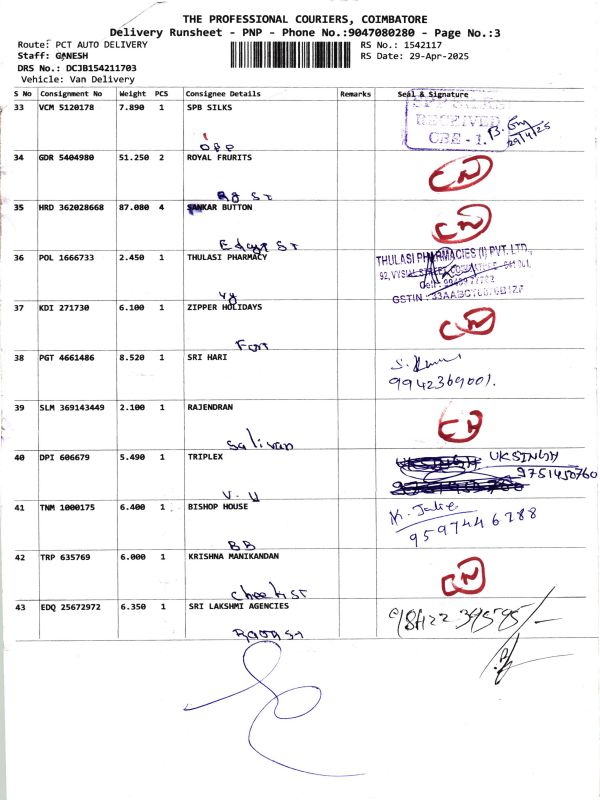 THE PROFESSIONAL COURIERS, COIMBATORE
Delivery Runsheet - PNP - Phone No.:9047080280 - Page No.:3
Route: PCT AUTO DELIVERY RS No.: 1542117
Staff: GANESH RS Date: 29-Apr-2025
DRS No.: DCJB154211703
Vehicle: Van Delivery
S No Consignment No Weight PCS Consignee Details Remarks Seal & Signature
33 VCM 5120178 7.890 1 SPB SILKS
RECEIVED
CBE - 1.
29/4/25
OPP
34 GDR 5404980 51.250 2 ROYAL FRURITS
CN
Rg St
35 HRD 362028668 87.080 4 SANKAR BUTTON
CN
St
36 POL 1666733 2.450 1 THULASI PHARMACY
THULASI PHARMACIES (I) PVT. LTD.,
92, VYSIAL STREET, COIMBATORE - 641 001.
GSTIN :
Vy
37 KDI 271730 6.100 1 ZIPPER HOLIDAYS
CN
Fort
38 PGT 4661486 8.520 1 SRI HARI
9942369001.
39 SLM 369143449 2.100 1 RAJENDRAN
CN
Salivan
40 DPI 606679 5.490 1 TRIPLEX
UKSINGH
9751450760
V.V
41 TNM 1000175 6.400 1 BISHOP HOUSE
9597446288
BB
42 TRP 635769 6.000 1 KRISHNA MANIKANDAN
CN
43 EDQ 25672972 6.350 1 SRI LAKSHMI AGENCIES